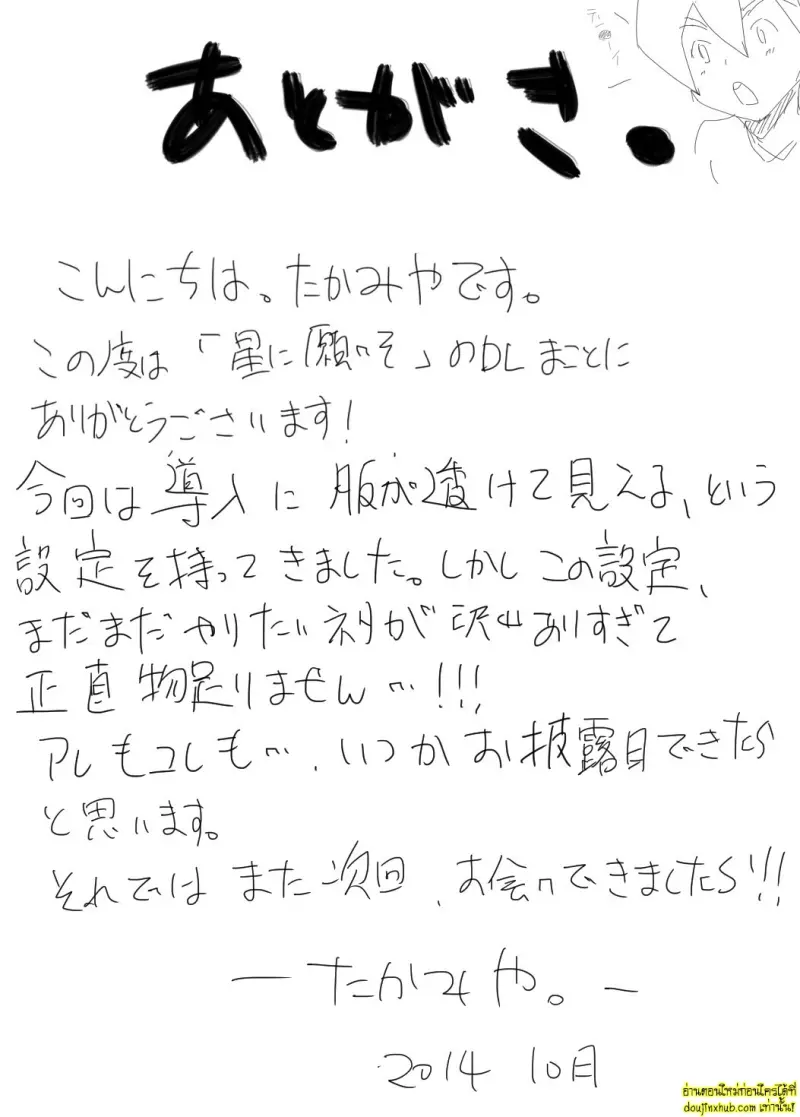 あとがき.
こんにちは。たかみやです。
この度は「星に願いを」のDLまことに
ありがとうございます!
今回は導入に服が透けて見える、という
設定を持ってきました。しかしこの設定、
まだまだやりたいネタが沢山ありすぎて
正直物足りません…!!!
アレもコレも…、いつかお披露目できたら
と思います。
それではまた次回、お会いできましたら!!!
ーたかみや。ー
2014 10月
อ่านตอนใหม่ก่อนใครได้ที่
doujinxhub.com เท่านั้น!